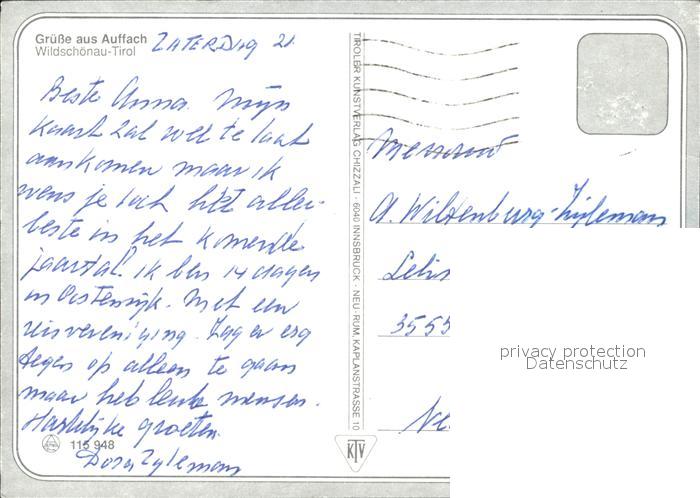 Grüße aus Auffach
Wildschönau-Tirol
ZATERDAG 21
Beste Anna. Mijn
kaart zal wel te laat
aankomen maar ik
wens je toch het aller-
beste in het komende
jaartal! ik ben 14 dagen
in Oostenrijk. Met een
reisvereniging. Zag er erg
tegen op alleen te gaan
maar heb leuke mensen.
Hartelijke groeten
Dora Zijlemans
115 948
TIROLER KUNSTVERLAG CHIZZALI · 6040 INNSBRUCK - NEU-RUM, KAPLANSTRASSE 10
KTV
Mevrouw
A. Wiltenburg-Zijlemans
Lelis
3555
Ne
privacy protection
Datenschutz